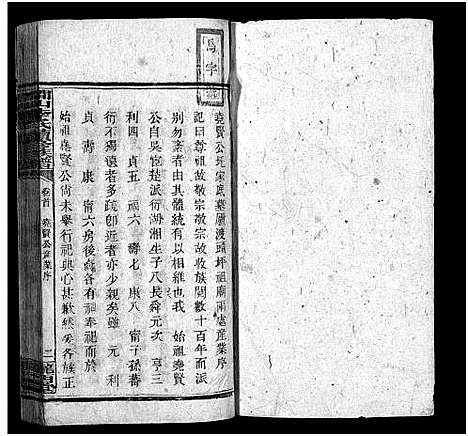 堯賢公坪宋底墓廬渡頭坪祖廟兩處產業序
記曰尊祖故敬宗敬宗故收族閱數十百年而派
別勿紊者由其體統有以相維也我 始祖堯賢
公自吳宦楚派衍湖湘生子八長舜元次 亨三
利四 貞五 福六 壽七 康八 甯子孫蕃
衍不獨遠者多疏卽近者亦少親矣雖 元 利
貞 壽 康 甯六房後裔各有祖奉祀而於
始祖堯賢公尚未舉行祀典心甚歉然爰各族正
卷首 堯賢公產業序
二
字